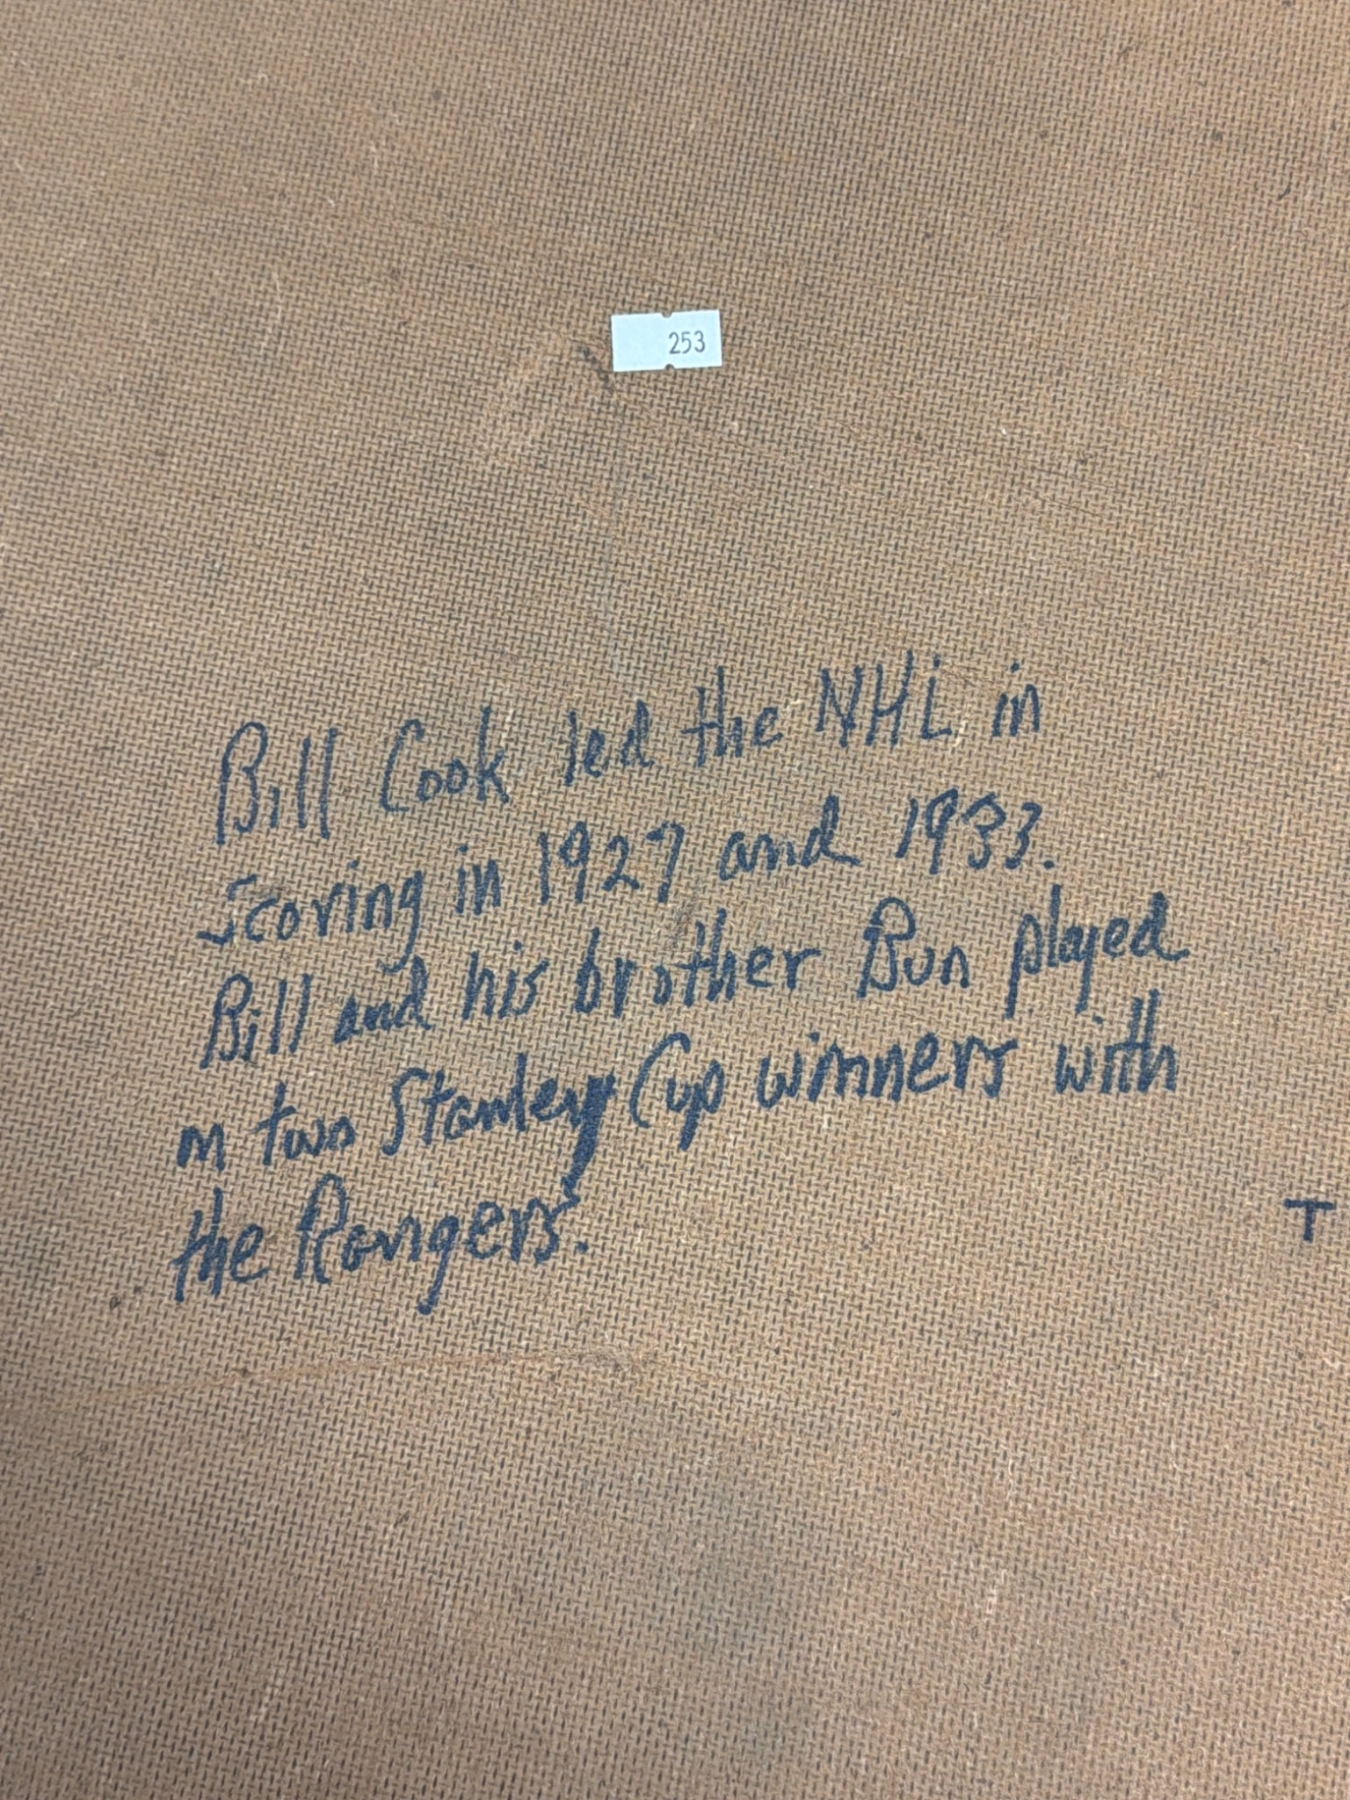 253
Bill Cook led the NHL in
scoring in 1927 and 1933.
Bill and his brother Bun played
in two Stanley Cup winners with
the Rangers.
T